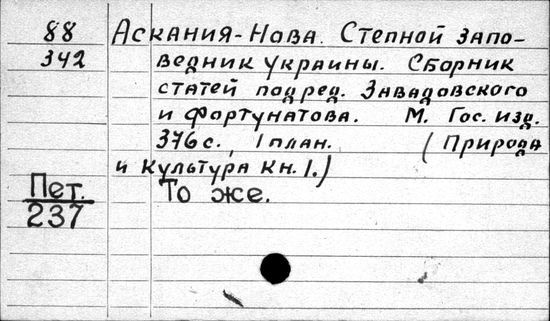 88 Аскания-Нова. Степной запо-
342 ведник Украины. Сборник
статей под ред. Завадовского
и Фортунатова. М. Гос. изд.
376 с., 1 план. (Природа
и культура Кн. 1.)
Пет. То же.
237